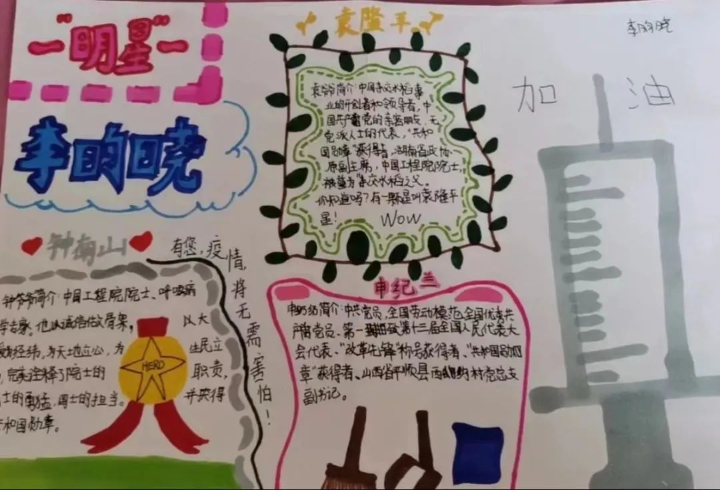 "明星"
李昀晓
袁隆平
李昀晓
加油
袁爷爷简介:中国杂交水稻事
业的开创者和领导者,中
国共产党的亲密朋友,无
党派人士的代表,"共和
国勋章"获得者,湖南省政协
原副主席,中国工程院院士,
被誉为"杂交水稻之父。
你知道吗?有一颗星叫袁隆平
星!
Wow
钟南山
有您,疫情将无需害怕!
钟爷爷简介:中国工程院院士、呼吸病
为天地立心,为
生民立
职责,
HERO
国士的担当。
并获得
共和国勋章。
申纪兰
申奶奶简介:中共党员,全国劳动模范,全国优秀共
产党员,第一
第十三届全国人民代表大
会代表。"改革先锋"称号获得者、"共和国勋
章"获得者、山西省平顺县西沟村党总支
副书记。